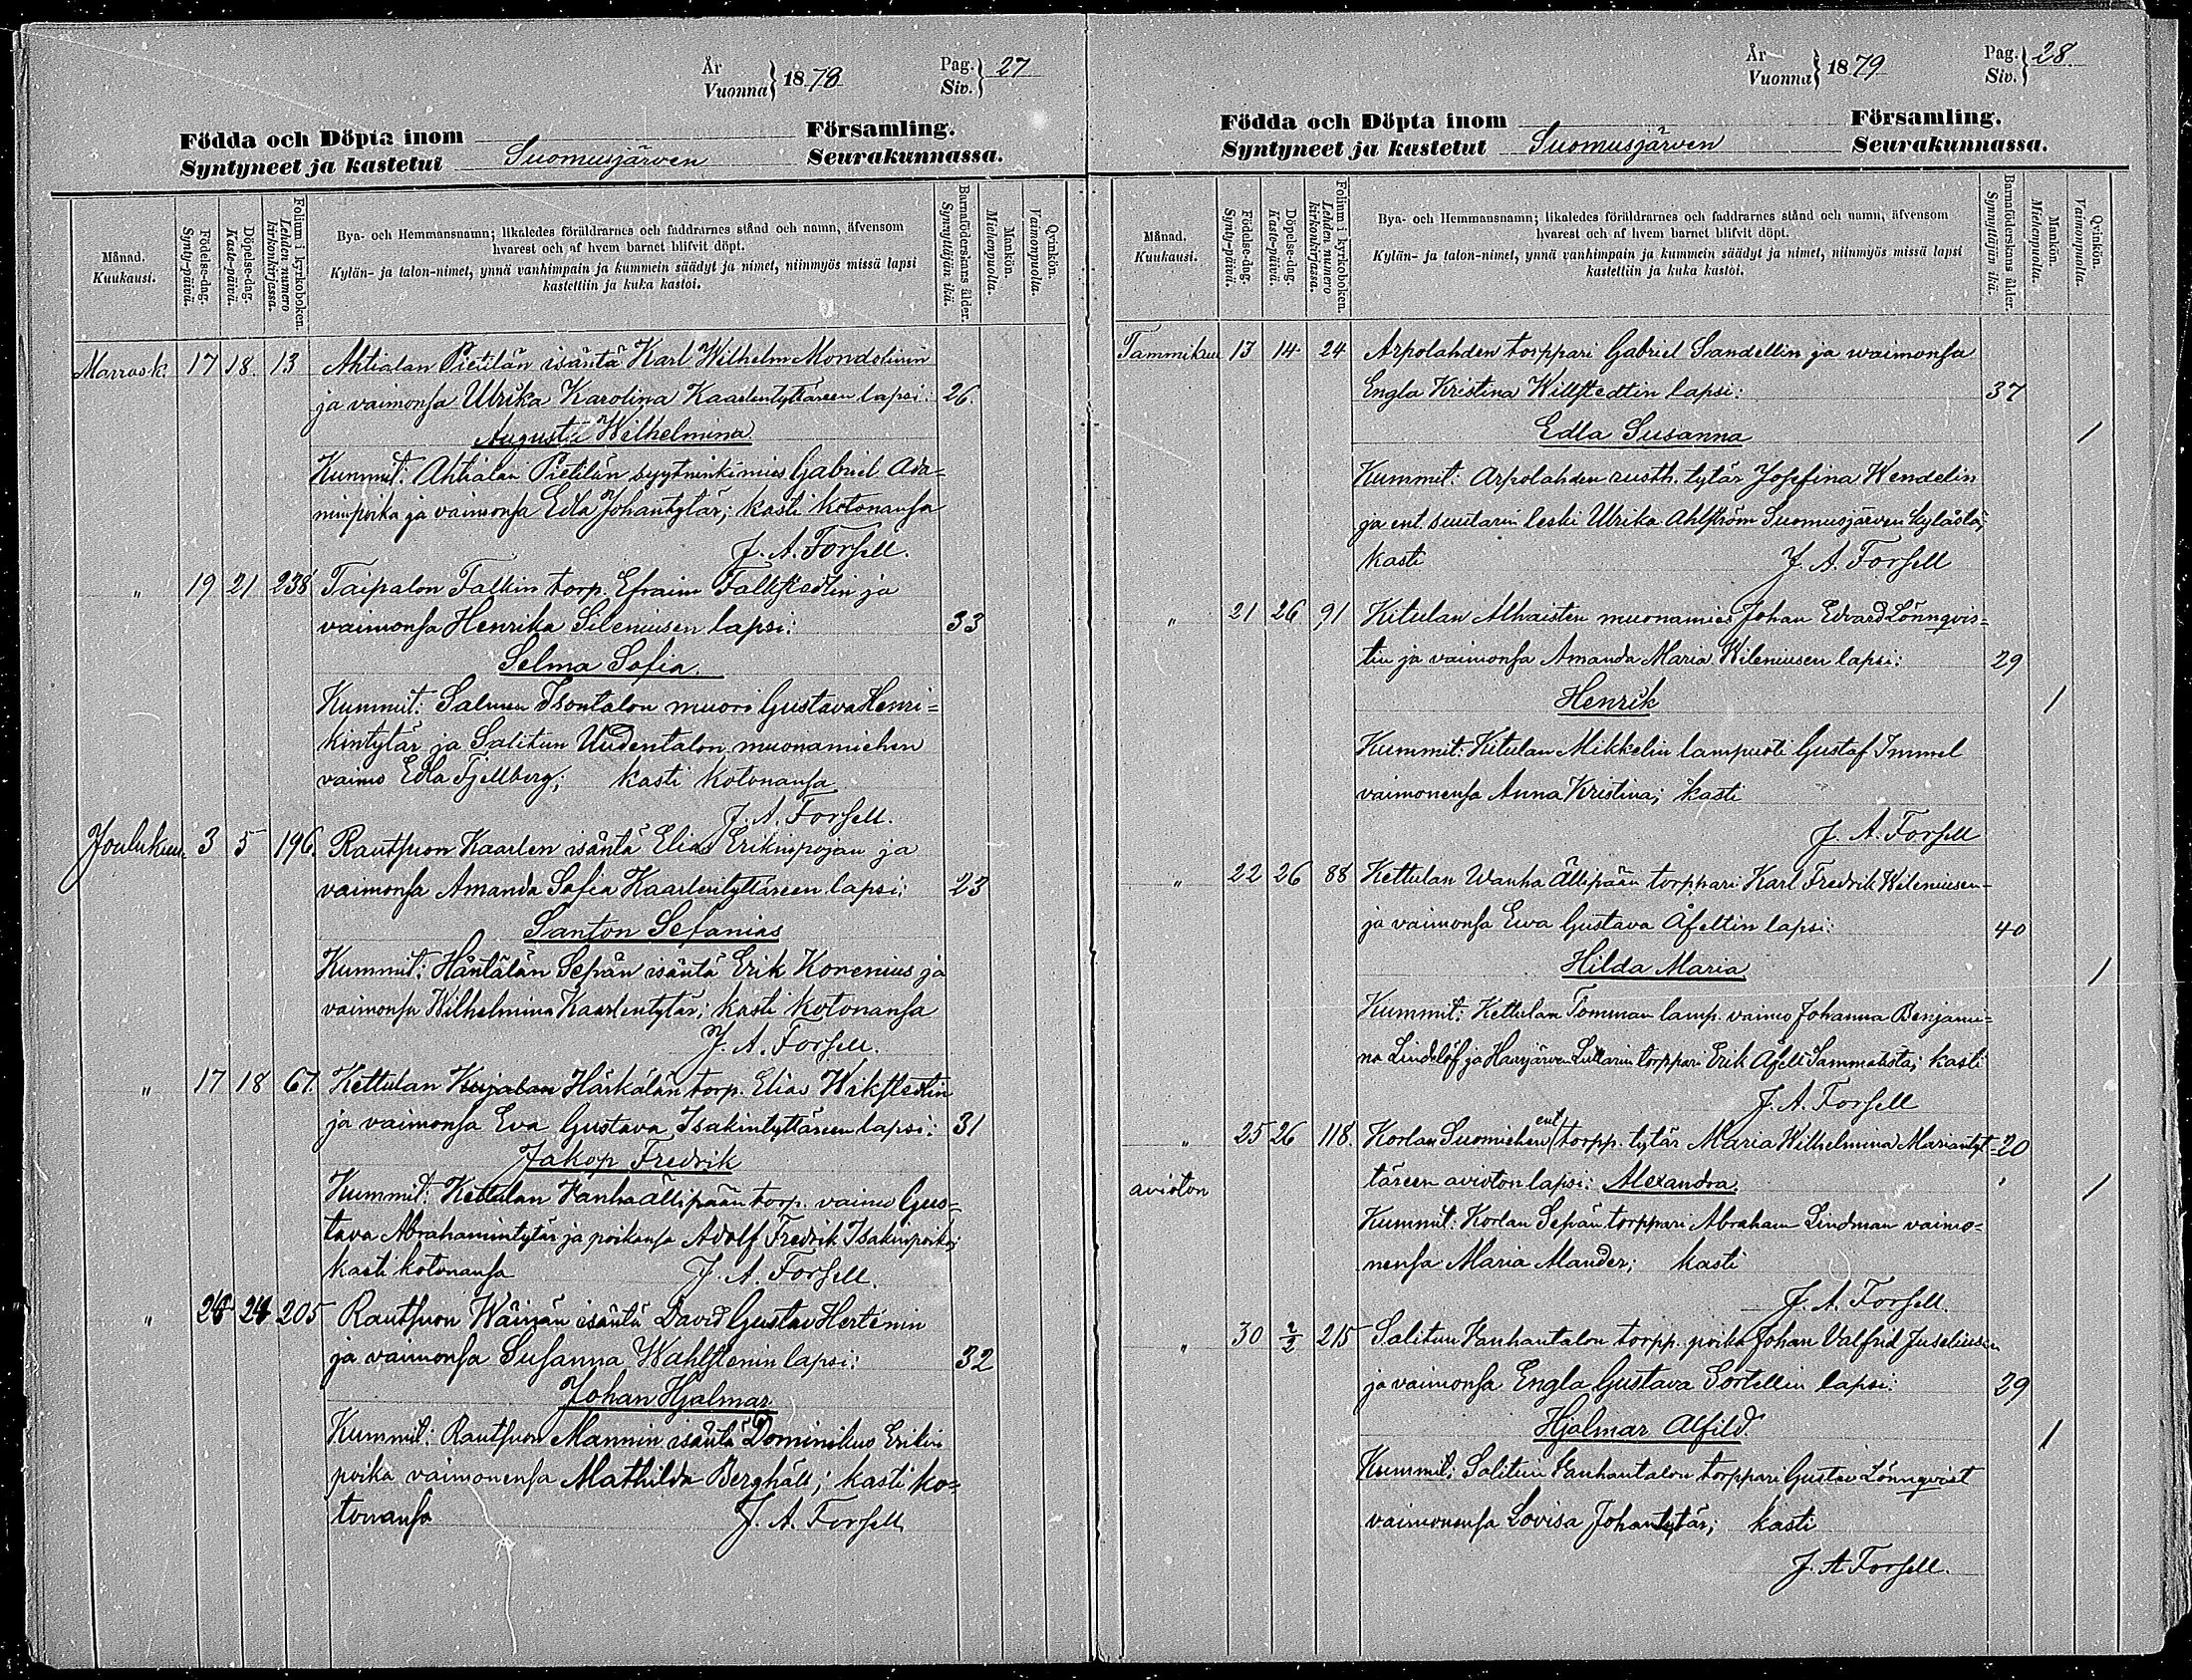 År
Vuonna } 1878
Pag.
Siv. } 27
Födda och Döpta inom Församling.
Syntyneet ja kastetut Suomusjärven Seurakunnassa.
Månad.
Kuukausi.
Födelse-dag.
Synty-päivä.
Döpelse-dag.
Kaste-päivä.
Folium i kyrkoboken.
Lehden numero kirkonkirjassa.
Bya- och Hemmansnamn; likaledes föräldrarnes och faddrarnes stånd och namn, äfvensom
hvarest och af hvem barnet blifvit döpt.
Kylän- ja talon-nimet, ynnä vanhimpain ja kummein säädyt ja nimet, niinmyös missä lapsi
kastettiin ja kuka kastoi.
Barnaföderskans ålder.
Synnyttäjän ikä.
Mankön.
Miehenpuolta.
Qvinkön.
Vaimonpuolta.
Marrask. 17 18. 13 Ahtialan Pietilän isäntä Karl Wilhelm Mondolinin
ja vaimonsa Ulrika Karolina Kaarlentyttäreen lapsi: 26.
Augusta Wilhelmina
Kummit: Ahtialan Pietilän syytninkimies Gabriel Ada-
minpoika ja vaimonsa Edla Johantytär; kasti kotonansa
J. A. Forsell.
" 19 21 238 Taipalon Falkin torp. Efraim Falkstedtin ja
vaimonsa Henrika Sileniusen lapsi: 33
Selma Sofia.
Kummit: Salmen Isontalon muori Gustava Henri=
kintytär ja Salitun Uudentalon muonamiehen
vaimo Edla Fjellberg; kasti kotonansa
J. A. Forsell.
Joulukuu. 3 5 196. Rautsuon Kaarlen isäntä Elias Erikinpojan ja
vaimonsa Amanda Sofia Kaarlentyttäreen lapsi: 23
Santon Sefanias
Kummit: Häntälän Sepän isäntä Erik Korenius ja
vaimonsa Wilhelmina Kaarlentytär; kasti kotonansa
J. A. Forsell.
" 17 18 67. Kettulan Kujalan Härkälän torp. Elias Wikstedtin
ja vaimonsa Eva Gustava Isakintyttäreen lapsi: 31
Jakop Fredrik
Kummit: Kettulan Vanhaällipään torp. vaimo Gus-
tava Abrahamintytär ja poikansa Adolf Fredrik Isakinpoika;
kasti kotonansa J. A. Forsell.
" 24 205 Rautsuon Wäinän isäntä David Gustav Hertenin
ja vaimonsa Susanna Wahlstenin lapsi: 32
Johan Hjalmar
Kummit: Rautsuon Mannin isäntä Dominikus Erikin
poika vaimonensa Mathilda Berghäll; kasti ko=
tonansa J. A. Forsell
År
Vuonna } 1879
Pag.
Siv. } 28
Födda och Döpta inom Församling.
Syntyneet ja kastetut Suomusjärven Seurakunnassa.
Månad.
Kuukausi.
Födelse-dag.
Synty-päivä.
Döpelse-dag.
Kaste-päivä.
Folium i kyrkoboken.
Lehden numero kirkonkirjassa.
Bya- och Hemmansnamn; likaledes föräldrarnes och faddrarnes stånd och namn, äfvensom
hvarest och af hvem barnet blifvit döpt.
Kylän- ja talon-nimet, ynnä vanhimpain ja kummein säädyt ja nimet, niinmyös missä lapsi
kastettiin ja kuka kastoi.
Barnaföderskans ålder.
Synnyttäjän ikä.
Mankön.
Miehenpuolta.
Qvinkön.
Vaimonpuolta.
Tammikuu 13 14 24 Arpolahden torppari Gabriel Sandellin ja waimonsa
Engla Kristina Willstedtin lapsi: 37
Edla Susanna 1
Kummit: Arpolahden rusth. tytär Josefina Wendelin
ja ent. suutarin leski Ulrika Ahlström Suomusjärven kylästä;
kasti J. A. Forsell
" 21 26 91 Kitulan Alhaisten muonamies Johan Edvard Lönnqvis=
tin ja vaimonsa Amanda Maria Wileniusen lapsi: 29
Henrik 1
Kummit: Kitulan Mikkelin lampuoti Gustaf Immel
vaimonensa Anna Kristina; kasti
J. A. Forsell
" 22 26 88 Kettulan Wanha Ällipään torppari Karl Fredrik Wileniusen
ja vaimonsa Ewa Gustava Åfeltin lapsi: 40
Hilda Maria 1
Kummit: Kettulan Tomman lamp. vaimo Johanna Benjami=
na Lindelöf ja torppari Erik Åfelt Sammatista; kasti
J. A. Forsell
" 25 26 118. Korlan Suomiehen ent torpp. tytär Maria Wilhelmina Mariantyt= 20
avioton täreen avioton lapsi: Alexandra. 1
Kummit: Korlan Sepän torppari Abraham Lindman vaimo=
nensa Maria Mander; kasti
J. A. Forsell.
" 30 2/2 215 Salitun Vanhantalon torpp. poika Johan Valfrid Juseliusen
ja vaimonsa Engla Gustava Sortellin lapsi: 29
Hjalmar Alfild. 1
Kummit: Salitun Vanhantalon torppari Gustav Lönnqvist
vaimonensa Lovisa Johantytär; kasti
J. A Forsell.